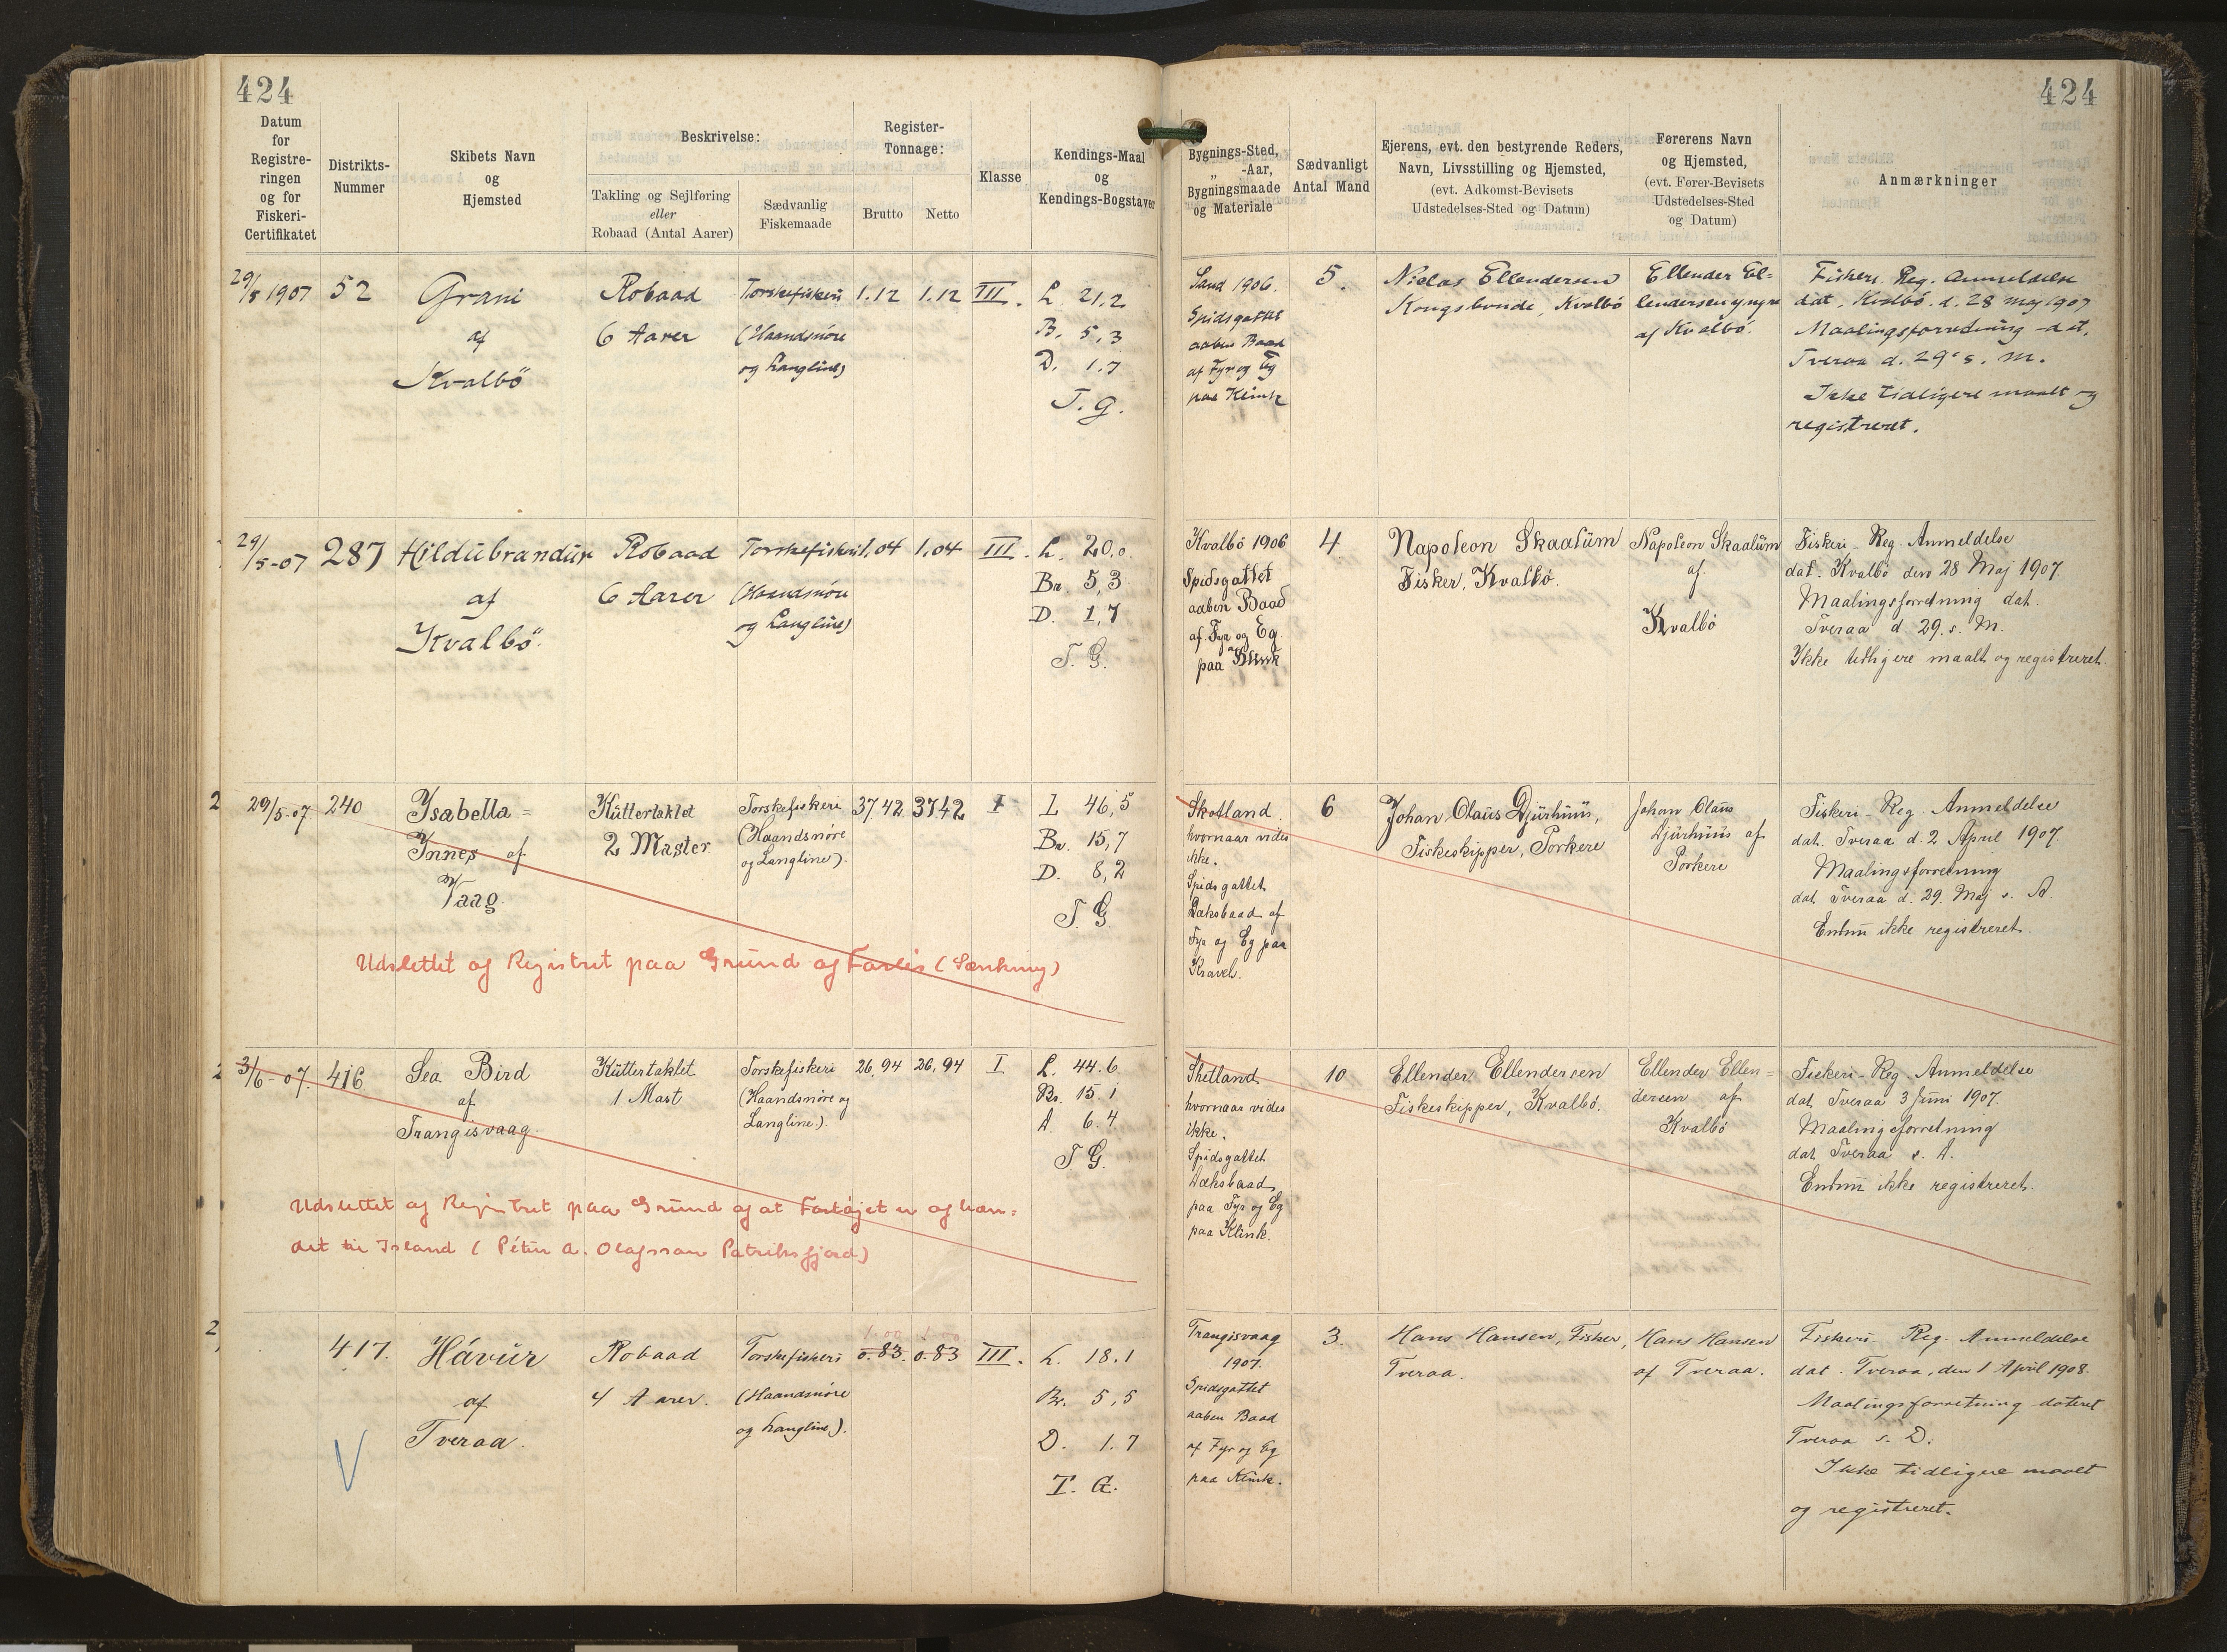 424
424
Datum for Registreringen og for Fiskeri-Certifikatet
Distrikts-Nummer
Skibets Navn og Hjemsted
Beskrivelse:
Takling og Sejlføring eller Robaad (Antal Aarer)
Sædvanlig Fiskemaade
Register-Tonnage:
Brutto
Netto
Klasse
Kendings-Maal og Kendings-Bogstaver
Bygnings-Sted, „ -Aar, Bygningsmaade og Materiale
Sædvanligt Antal Mand
Ejerens, evt. den bestyrende Reders, Navn, Livsstilling og Hjemsted, (evt. Adkomst-Bevisets Udstedelses-Sted og Datum)
Førerens Navn og Hjemsted, (evt. Fører-Bevisets Udstedelses-Sted og Datum)
Anmærkninger
29/5 1907
52
Grani
af
Kvalbö
Robaad
6 Aarer
Torskefiskeri
(Haandsnöre
og Langline)
1.12
1.12
III.
L. 21,2
B. 5,3
D. 1.7
T. G.
Sand 1906.
Spidsgattet
aaben Baad
af Fyr og Eg
paa Klink
5.
Niclas Ellendersen
Kongsbonde, Kvalbö
Ellender El-
lendersen yngre
af Kvalbö.
Fiskeri. Reg. Anmeldelse
dat. Kvalbö. d. 28 Maj 1907
Maalingsforretning dat.
Tveraa d. 29' s. M.
Ikke tidligere maalt og
registreret.
29/5-07
287
Hildubrandur
af
Kvalbö.
Robaad
6 Aarer
Torskefiskeri
(Haandsnöre
og Langline)
1,04
1,04
III.
L. 20,0.
Br. 5,3
D. 1,7
T. G.
Kvalbö 1906
Spidsgattet
aaben Baad
af Fyr og Eg
paa Klink
4
Napoleon Skaalum
Fisker, Kvalbö.
Napoleon Skaalum
af
Kvalbö
Fiskeri-Reg. Anmeldelse
dat. Kvalbö den 28 Maj 1907.
Maalingsforretning dat.
Tveraa d. 29. s. M.
Ikke tidligere maalt og registreret.
2
29/5-07.
240
Ysabella=
Ynnes af
Vaag.
Kuttertaklet
2 Master
Torskefiskeri
(Haandsnöre
og Langline).
37,42
37.42
I
L 46,5
Br. 15,7
D. 8,2
T G.
Skotland.
hvornaar vides
ikke.
Spidsgattet
Dæksbaad af
Fyr og Eg paa
Kravel.
6
Johan Olaus Djurhuus,
Fiskeskipper, Porkere
Johan Olaus
Djurhuus af
Porkere
Fiskeri-Reg. Anmeldelse
dat. Tveraa d. 2 April 1907.
Maalingsforretning
dat. Tveraa d. 29. Maj s. A.
Endnu ikke registreret.
Udslettet af Registret paa Grund af Forlis (Sænkning)
2
3/6-07.
416
Sea Bird
af
Trangisvaag.
Kuttertaklet
1 Mast
Torskefiskeri
(Haandsnöre og
Langline).
26,94
26,94
I
L. 44.6.
Br. 15 1
D. 6.4
T G.
Shetland,
hvornaar vides
ikke.
Spidsgattet
Dæksbaad,
paa Fyr og Eg
paa Klink.
10
Ellender Ellendersen
Fiskeskipper, Kvalbö.
Ellender Ellen=
dersen af
Kvalbö
Fiskeri-Reg. Anmeldelse
dat. Tveraa 3 Juni 1907.
Maalingsforretning
dat. Tveraa s. D.
Endnu ikke registreret.
Udslettet af Registret paa Grund af at Fartøjet er afhæn=
det til Island (Pétur A. Olafsson Patriksfjord)
2
417.
Hávur
af
Tveraa.
Robaad
4 Aarer.
Torskefiskeri
(Haandsnöre
og Langline).
1.00
0.83.
1.00
0.83
III.
L. 18.1
Br. 5,5
D. 1.7
T. G.
Trangisvaag
1907.
Spidsgattet
aaben Baad
af Fyr og Eg
paa Klink.
3.
Hans Hansen, Fisker,
Tveraa.
Hans Hansen
af Tveraa.
Fiskeri Reg. Anmeldelse
dat. Tveraa, den 1 April 1908.
Maalingsforretning dateret
Tveraa s. D.
Ikke tidligere maalt
og registreret.